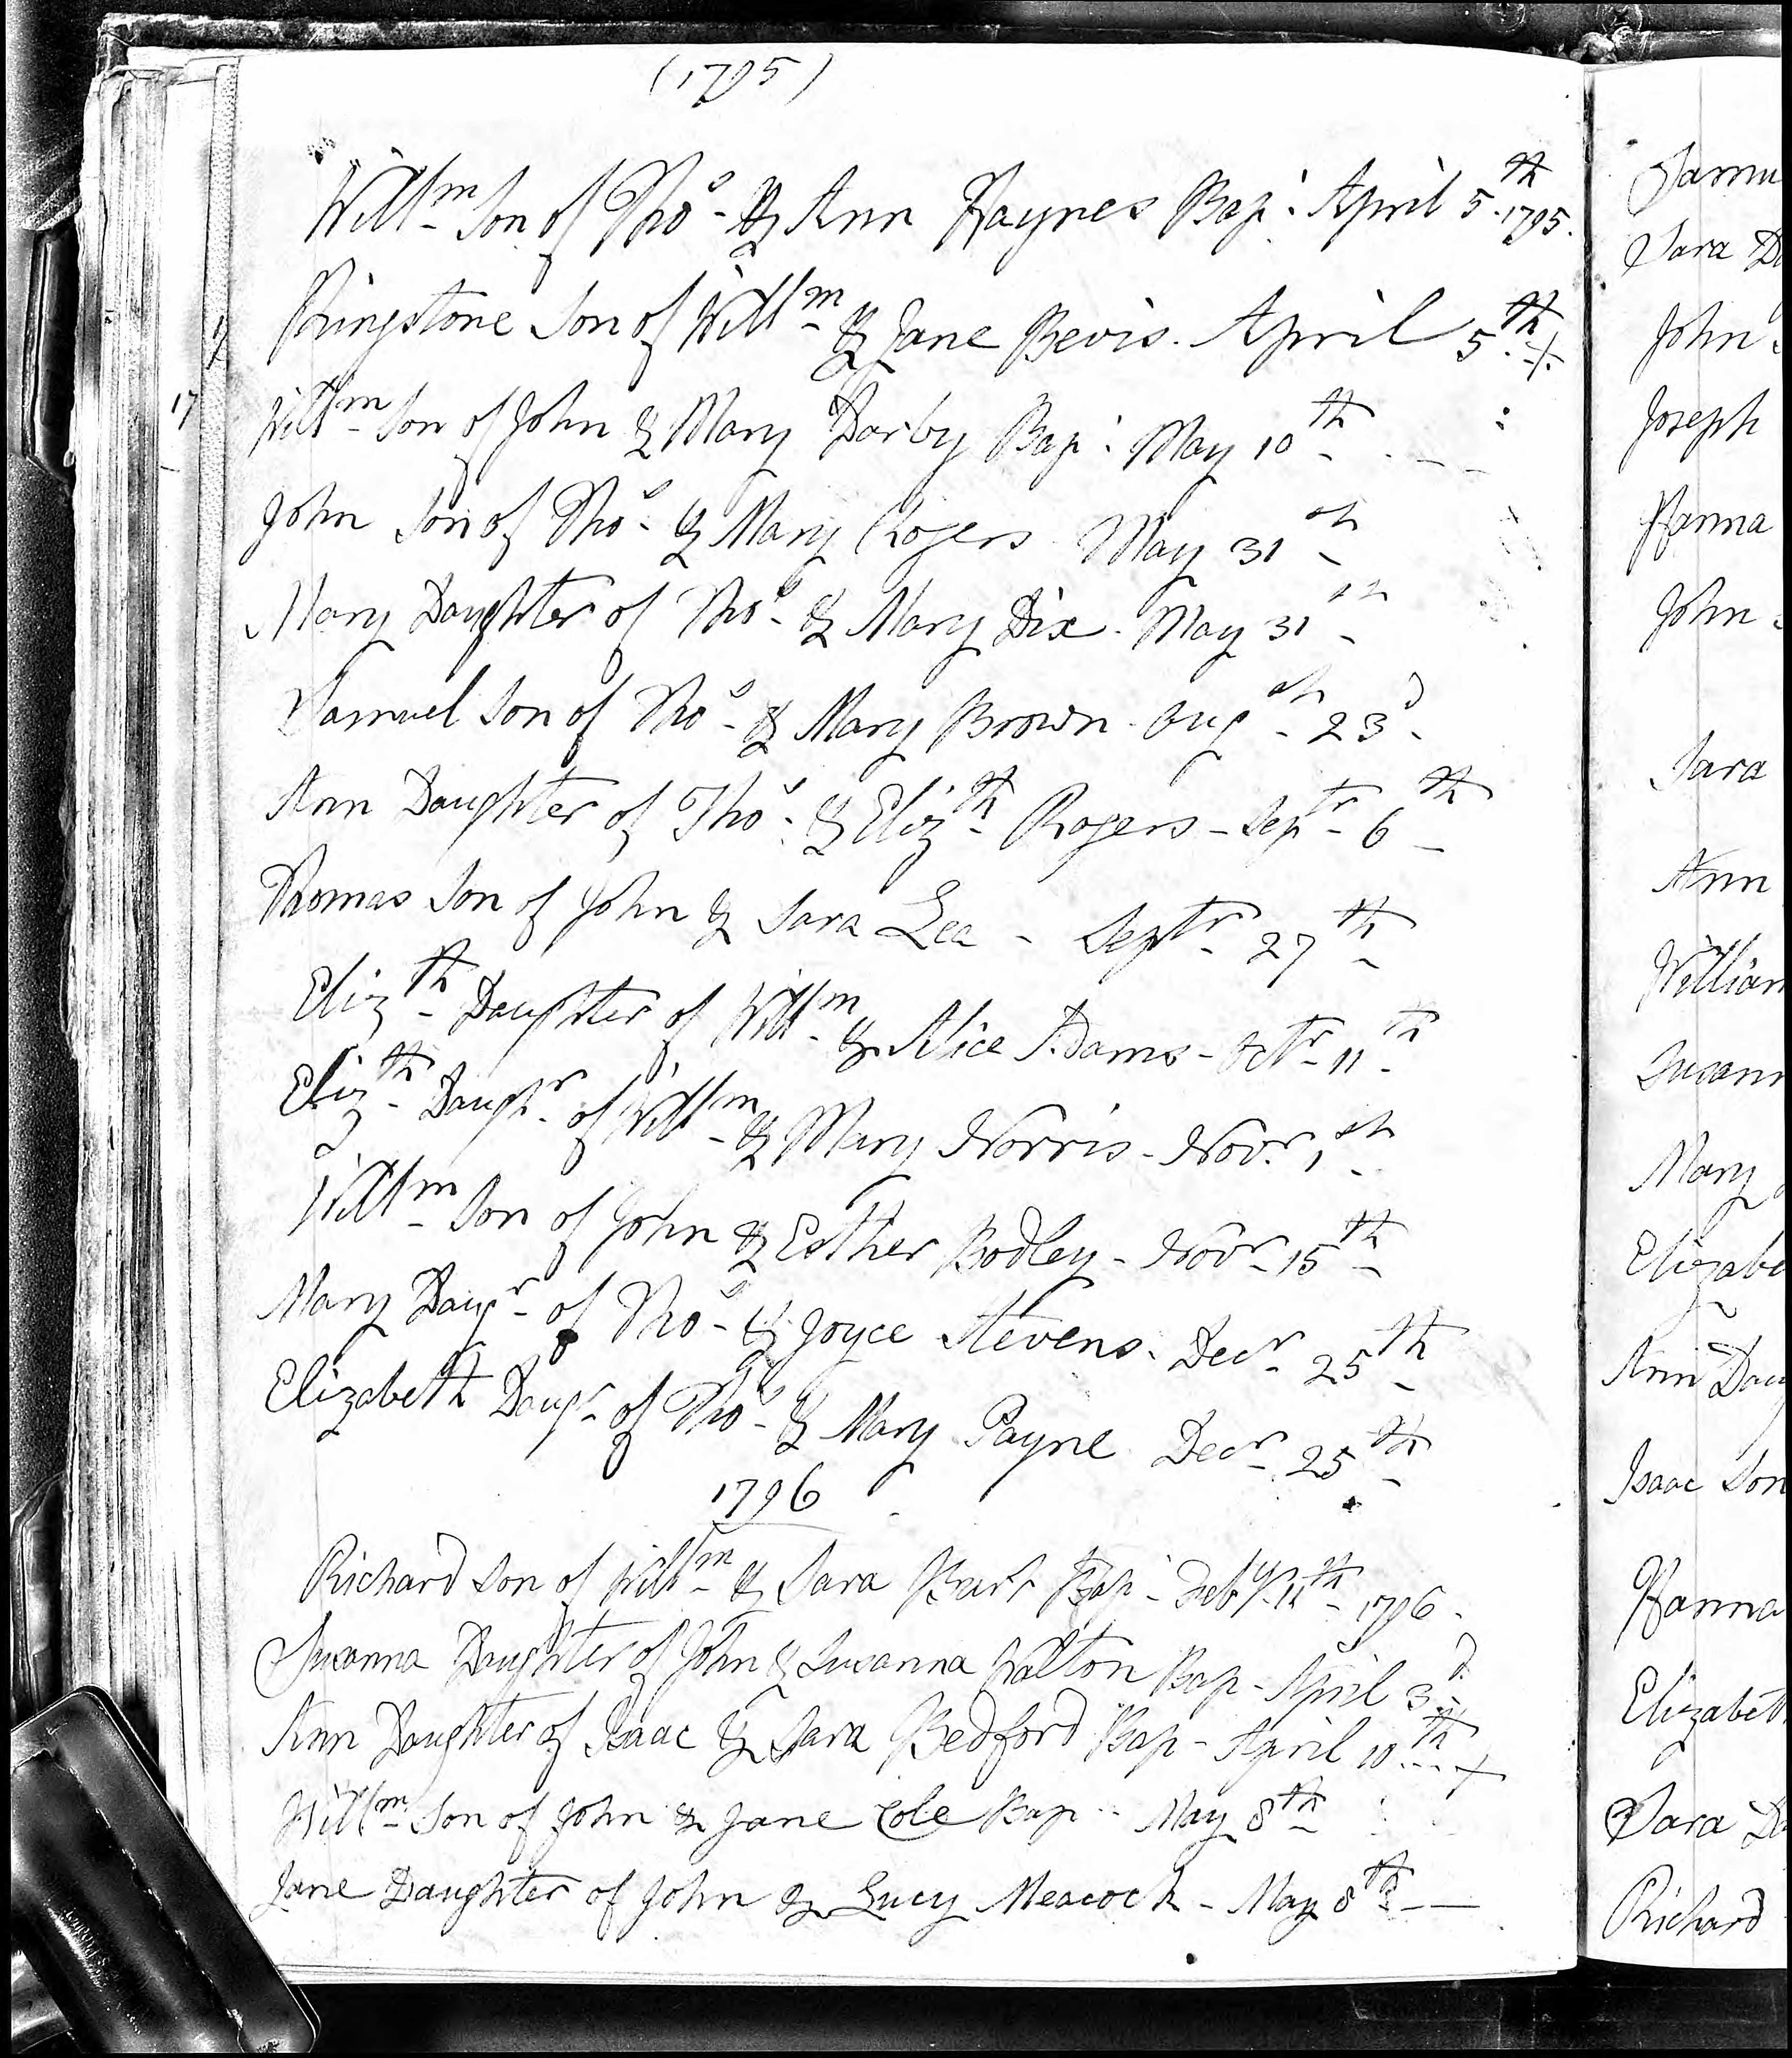 (1795)
Willm Son of Thos & Ann Haynes Bap: April 5th 1795.
Kingstone Son of Willm & Jane Bevis. April 5th
17
Willm Son of John & Mary Darby Bap: May 10th
John Son of Thos & Mary Rogers May 31st
Mary Daughter of Thos & Mary Dix. May 31st
Samuel Son of Thos & Mary Brown. Augst 23d
Ann Daughter of Thos & Elizth Rogers - Septr 6th
Thomas Son of John & Sara Lea - Septr 27th
Elizth Daughter of Willm & Alice Adams - Octr 11th
Elizth Daughr of Willm & Mary Norris - Novr 1st
Willm Son of John & Esther Bodley - Novr 15th
Mary Daugr of Thos & Joyce Stevens. Decr 25th
Elizabeth Daugr of Thos & Mary Payne Decr 25th
1796
Richard Son of Willm & Sara Bap - Feby 11th 1796.
Susanna Daughter of John & Susanna Walton Bap - April 3d
Ann Daughter of Isaac & Sara Bedford Bap - April 10th
Willm Son of John & Jane Cole Bap - May 8th
Jane Daughter of John & Lucy Meacock - May 8th
Samu
Sara Da
John
Joseph
Hanna
John
Sara
Ann
William
Susann
Mary
Elizabe
Ann Dau
Isaac Son
Hanna
Elizabeth
Sara Da
Richard